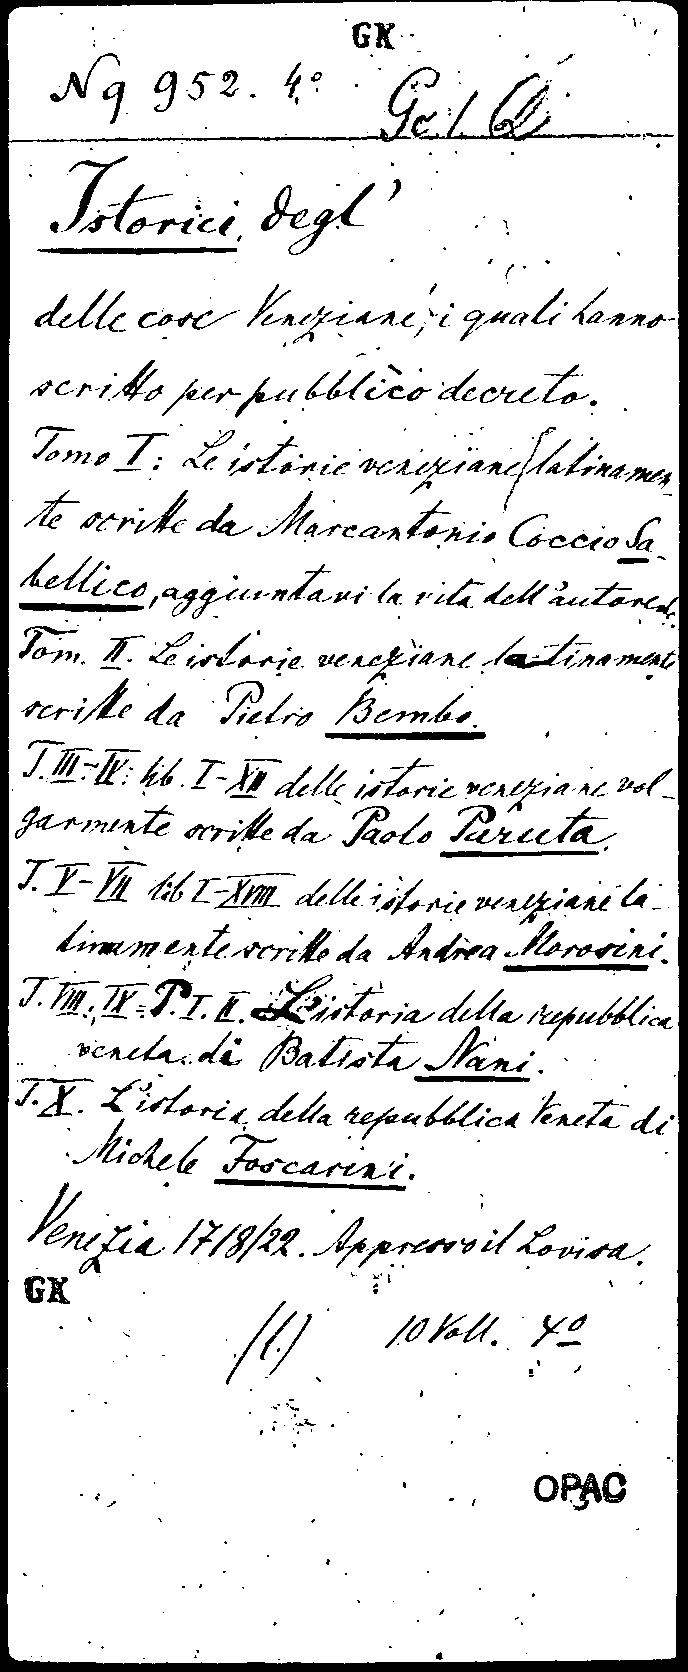 GK
Nq 952. 4°
Ge l.
Istorici, degl'
delle cose Veneziane, i quali hanno
scritto per pubblico decreto.
Tomo I: Le istorie veneziane latinamen-
te scritte da Marcantonio Coccio Sa-
bellico, aggiuntavi la vita dell'autore
Tom. II. Le istorie veneziane latinamente
scritte da Pietro Bembo.
T. III-IV: lib. I-XII delle istorie veneziane vol-
garmente scritte da Paolo Paruta.
T. V-VII lib I-XVIII delle istorie veneziane la-
tinamente scritte da Andrea Morosini.
T. VIII, IX = P. I. II. L'istoria della repubblica
veneta di Batista Nani.
T. X. L'istoria della repubblica Veneta di
Michele Foscarini.
Venezia 1718/22. Appresso il Lovisa.
GK
(l.) 10 Voll. 4°
OPAC